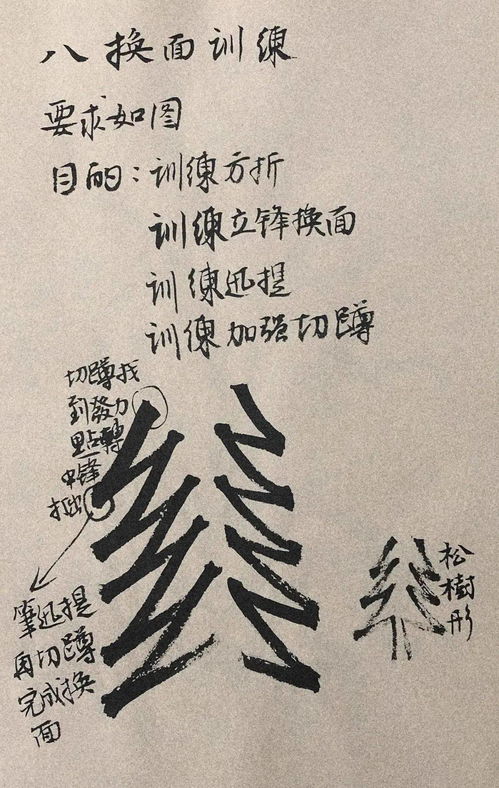 八换面训练
要求如图
目的：训练方折
训练立锋换面
训练迅提
训练加强切蹲
切蹲找
到發力
點轉
中鋒
拉出
筆迅提
再切蹲
完成换
面
松樹形